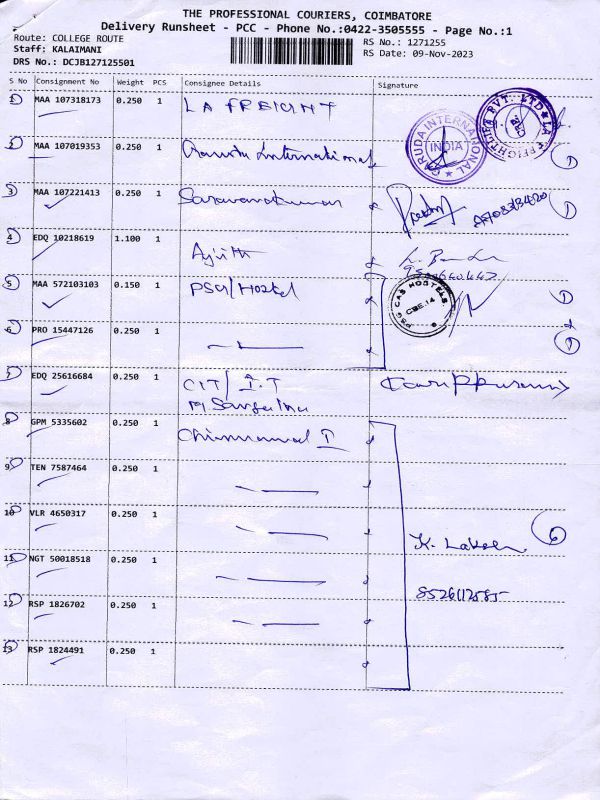 THE PROFESSIONAL COURIERS, COIMBATORE
Delivery Runsheet - PCC - Phone No.:0422-3505555 - Page No.:1
Route: COLLEGE ROUTE
RS No.: 1271255
Staff: KALAIMANI
RS Date: 09-Nov-2023
DRS No.: DCJB127125501
S No Consignment No Weight PCS Consignee Details Signature
1 MAA 107318173 0.250 1 LA FREIGHT
2 MAA 107019353 0.250 1 Garuda International
GARUDA INTERNATIONAL
INDIA
3 MAA 107221413 0.250 1 Saravanakumar
4 EDQ 10218619 1.100 1 Ajith
5 MAA 572103103 0.150 1 PSG/Hostel
PSG CAS HOSTELS
CBE.14
6 PRO 15447126 0.250 1
7 EDQ 25616684 0.250 1 CIT/ I.T
8 GPM 5335602 0.250 1
9 TEN 7587464 0.250 1
10 VLR 4650317 0.250 1
K.
6
11 NGT 50018518 0.250 1
12 RSP 1826702 0.250 1
13 RSP 1824491 0.250 1